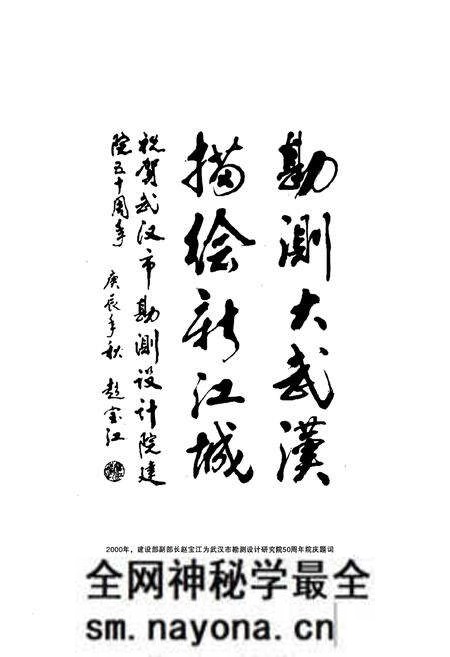 勘测大武漢
描绘新江城
祝贺武汉市勘测设计院建
院五十周年
庚辰年秋 赵宝江
2000年，建设部副部长赵宝江为武汉市勘测设计研究院50周年院庆题词
全网神秘学最全
sm.nayona.cn